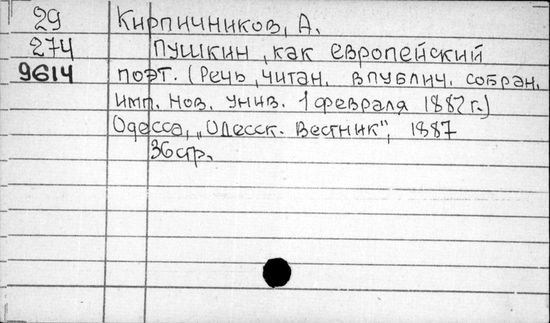 29 Кирпичников, А.
274 Пушкин, как европейский
9614 поэт. (Речь, читан. в публич. собран.
имп. Нов. унив. 1 февраля 1887 г.)
Одесса, „Одесск. Вестник", 1887
36 стр.